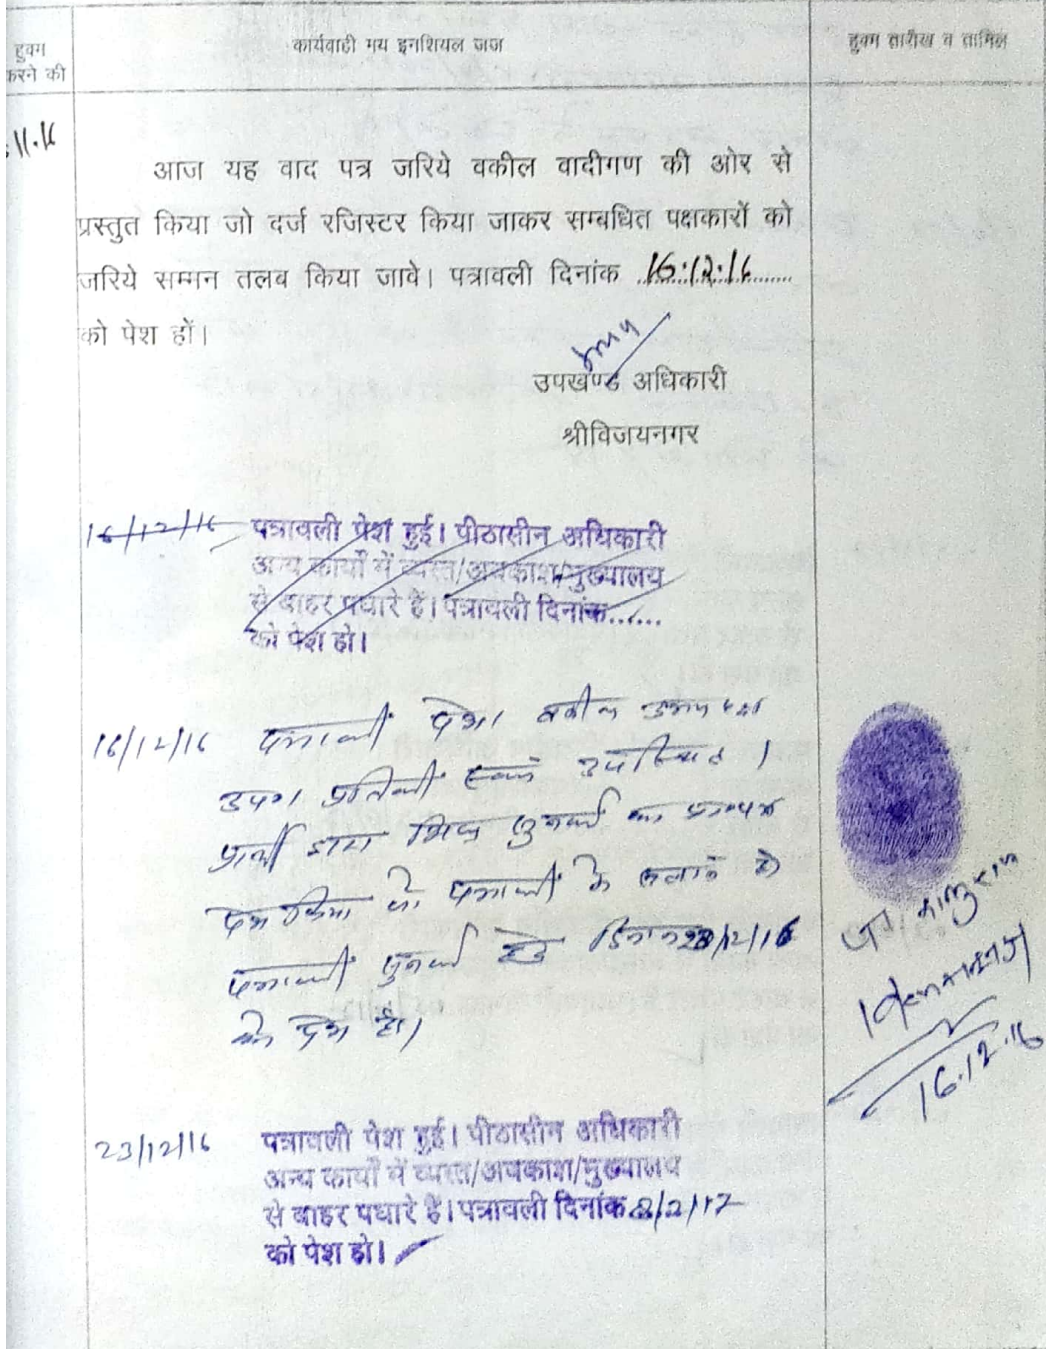 हुक्म
करने की
कार्यवाही मय इनशियल जज
हुक्म तारीख व तामिल
.11.16
आज यह वाद पत्र जरिये वकील वादीगण की ओर से
प्रस्तुत किया जो दर्ज रजिस्टर किया जाकर सम्बधित पक्षकारों को
जरिये सम्मन तलब किया जावे। पत्रावली दिनांक 16.12.16
को पेश हों।
उपखण्ड अधिकारी
श्रीविजयनगर
16/12/16 पत्रावली पेश हुई। पीठासीन अधिकारी
अन्य कार्यों में व्यस्त/अवकाश/मुख्यालय
से बाहर पधारे हैं। पत्रावली दिनांक......
को पेश हो।
16/12/16 पत्रावली पेश। वकील उभयपक्ष
उप। प्रतिवादी उपस्थित।
प्रार्थी द्वारा का
पेश किया जो पत्रावली के हो
पत्रावली हेतु दिनांक 23/12/16
को पेश हो।
16.12.16
23/12/16 पत्रावली पेश हुई। पीठासीन अधिकारी
अन्य कार्यों में व्यस्त/अवकाश/मुख्यालय
से बाहर पधारे हैं। पत्रावली दिनांक 8/2/17
को पेश हो।